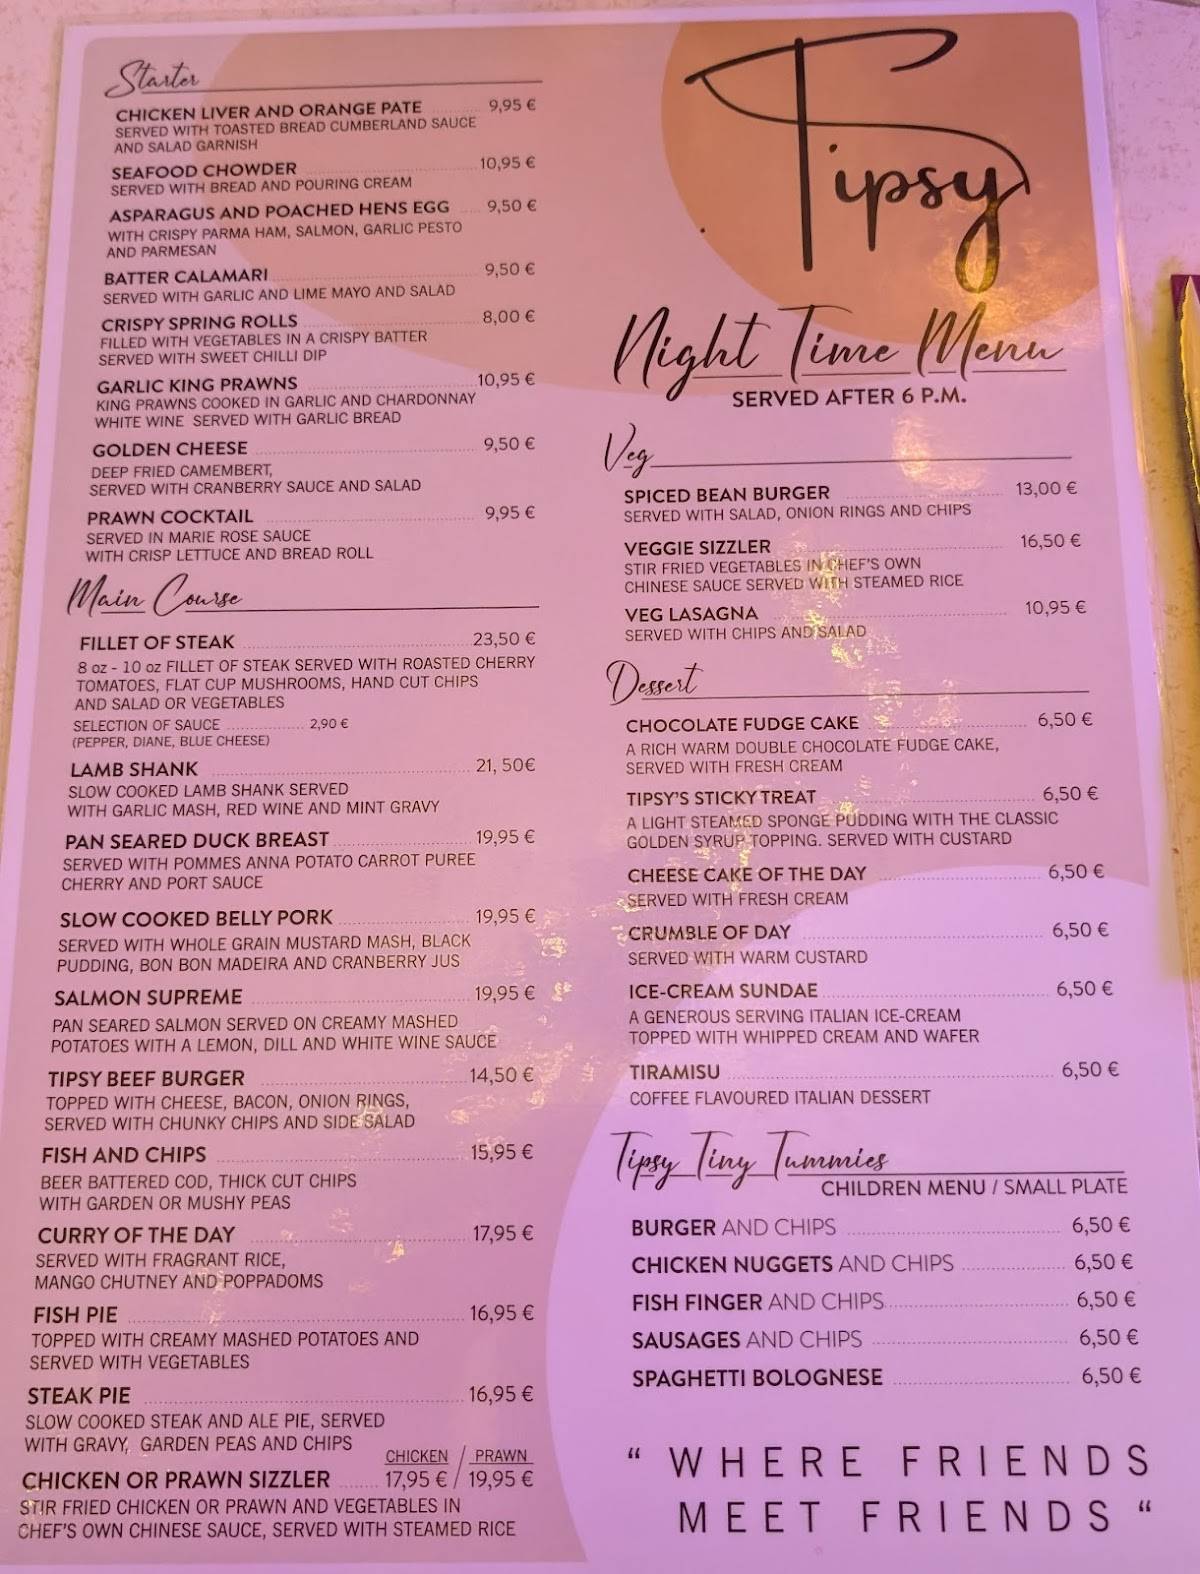 Starter
CHICKEN LIVER AND ORANGE PATE 9,95 €
SERVED WITH TOASTED BREAD CUMBERLAND SAUCE
AND SALAD GARNISH
SEAFOOD CHOWDER 10,95 €
SERVED WITH BREAD AND POURING CREAM
ASPARAGUS AND POACHED HENS EGG 9,50 €
WITH CRISPY PARMA HAM, SALMON, GARLIC PESTO
AND PARMESAN
BATTER CALAMARI 9,50 €
SERVED WITH GARLIC AND LIME MAYO AND SALAD
CRISPY SPRING ROLLS 8,00 €
FILLED WITH VEGETABLES IN A CRISPY BATTER
SERVED WITH SWEET CHILLI DIP
GARLIC KING PRAWNS 10,95 €
KING PRAWNS COOKED IN GARLIC AND CHARDONNAY
WHITE WINE SERVED WITH GARLIC BREAD
GOLDEN CHEESE 9,50 €
DEEP FRIED CAMEMBERT,
SERVED WITH CRANBERRY SAUCE AND SALAD
PRAWN COCKTAIL 9,95 €
SERVED IN MARIE ROSE SAUCE
WITH CRISP LETTUCE AND BREAD ROLL
Main Course
FILLET OF STEAK 23,50 €
8 oz - 10 oz FILLET OF STEAK SERVED WITH ROASTED CHERRY
TOMATOES, FLAT CUP MUSHROOMS, HAND CUT CHIPS
AND SALAD OR VEGETABLES
SELECTION OF SAUCE 2,90 €
(PEPPER, DIANE, BLUE CHEESE)
LAMB SHANK 21, 50€
SLOW COOKED LAMB SHANK SERVED
WITH GARLIC MASH, RED WINE AND MINT GRAVY
PAN SEARED DUCK BREAST 19,95 €
SERVED WITH POMMES ANNA POTATO CARROT PUREE
CHERRY AND PORT SAUCE
SLOW COOKED BELLY PORK 19,95 €
SERVED WITH WHOLE GRAIN MUSTARD MASH, BLACK
PUDDING, BON BON MADEIRA AND CRANBERRY JUS
SALMON SUPREME 19,95 €
PAN SEARED SALMON SERVED ON CREAMY MASHED
POTATOES WITH A LEMON, DILL AND WHITE WINE SAUCE
TIPSY BEEF BURGER 14,50 €
TOPPED WITH CHEESE, BACON, ONION RINGS,
SERVED WITH CHUNKY CHIPS AND SIDE SALAD
FISH AND CHIPS 15,95 €
BEER BATTERED COD, THICK CUT CHIPS
WITH GARDEN OR MUSHY PEAS
CURRY OF THE DAY 17,95 €
SERVED WITH FRAGRANT RICE,
MANGO CHUTNEY AND POPPADOMS
FISH PIE 16,95 €
TOPPED WITH CREAMY MASHED POTATOES AND
SERVED WITH VEGETABLES
STEAK PIE 16,95 €
SLOW COOKED STEAK AND ALE PIE, SERVED
WITH GRAVY, GARDEN PEAS AND CHIPS
CHICKEN / PRAWN
CHICKEN OR PRAWN SIZZLER 17,95 € / 19,95 €
STIR FRIED CHICKEN OR PRAWN AND VEGETABLES IN
CHEF'S OWN CHINESE SAUCE, SERVED WITH STEAMED RICE
Tipsy
Night Time Menu
SERVED AFTER 6 P.M.
Veg
SPICED BEAN BURGER 13,00 €
SERVED WITH SALAD, ONION RINGS AND CHIPS
VEGGIE SIZZLER 16,50 €
STIR FRIED VEGETABLES IN CHEF'S OWN
CHINESE SAUCE SERVED WITH STEAMED RICE
VEG LASAGNA 10,95 €
SERVED WITH CHIPS AND SALAD
Dessert
CHOCOLATE FUDGE CAKE 6,50 €
A RICH WARM DOUBLE CHOCOLATE FUDGE CAKE,
SERVED WITH FRESH CREAM
TIPSY'S STICKY TREAT 6,50 €
A LIGHT STEAMED SPONGE PUDDING WITH THE CLASSIC
GOLDEN SYRUP TOPPING. SERVED WITH CUSTARD
CHEESE CAKE OF THE DAY 6,50 €
SERVED WITH FRESH CREAM
CRUMBLE OF DAY 6,50 €
SERVED WITH WARM CUSTARD
ICE-CREAM SUNDAE 6,50 €
A GENEROUS SERVING ITALIAN ICE-CREAM
TOPPED WITH WHIPPED CREAM AND WAFER
TIRAMISU 6,50 €
COFFEE FLAVOURED ITALIAN DESSERT
Tipsy Tiny Tummies
CHILDREN MENU / SMALL PLATE
BURGER AND CHIPS 6,50 €
CHICKEN NUGGETS AND CHIPS 6,50 €
FISH FINGER AND CHIPS 6,50 €
SAUSAGES AND CHIPS 6,50 €
SPAGHETTI BOLOGNESE 6,50 €
“ WHERE FRIENDS
MEET FRIENDS “